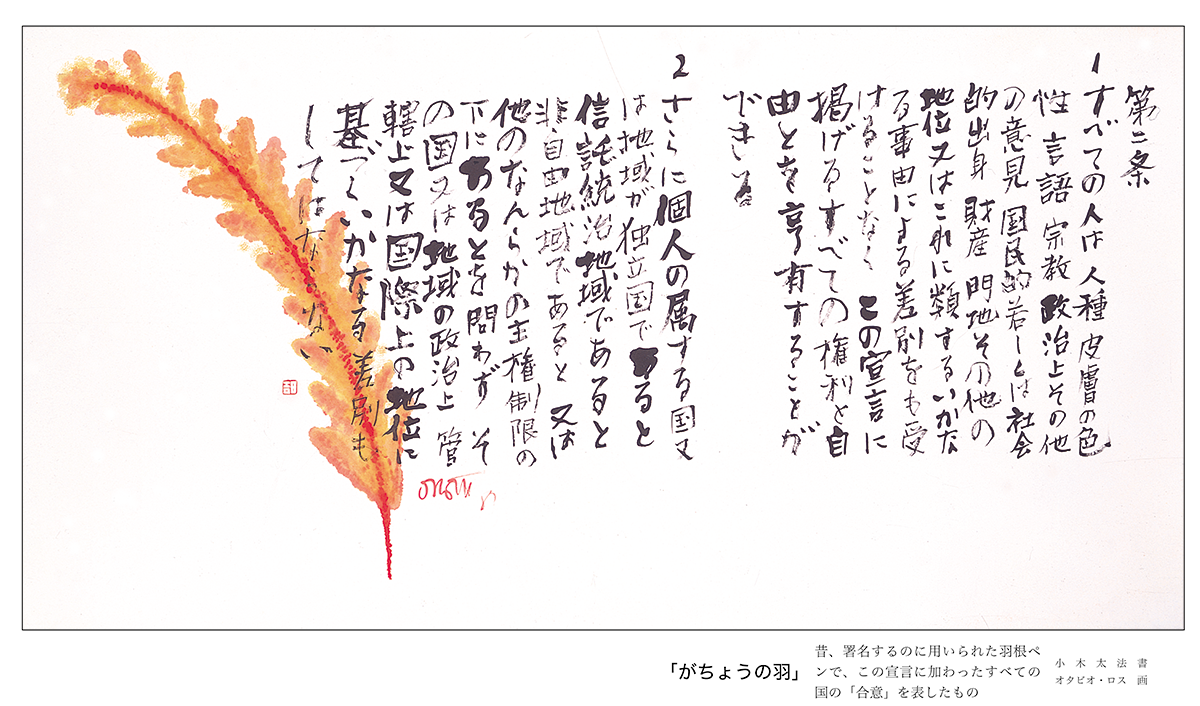 第二条
1 すべての人は 人種 皮膚の色
性 言語 宗教 政治上その他
の意見 国民的若しくは社会
的出身 財産 門地その他の
地位又はこれに類するいかな
る事由による差別をも受
けることなく この宣言に
掲げるすべての権利と自
由とを享有することが
できる
2 さらに個人の属する国又
は地域が独立国であると
信託統治地域であると
非自由地域であると 又は
他のなんらかの主権制限の
下にあるとを問わず そ
の国又は地域の政治上 管
轄上又は国際上の地位に
基づくいかなる差別も
してはならない
「がちょうの羽」
昔、署名するのに用いられた羽根ペ
ンで、この宣言に加わったすべての
国の「合意」を表したもの
小木太法 書
オタビオ・ロス 画